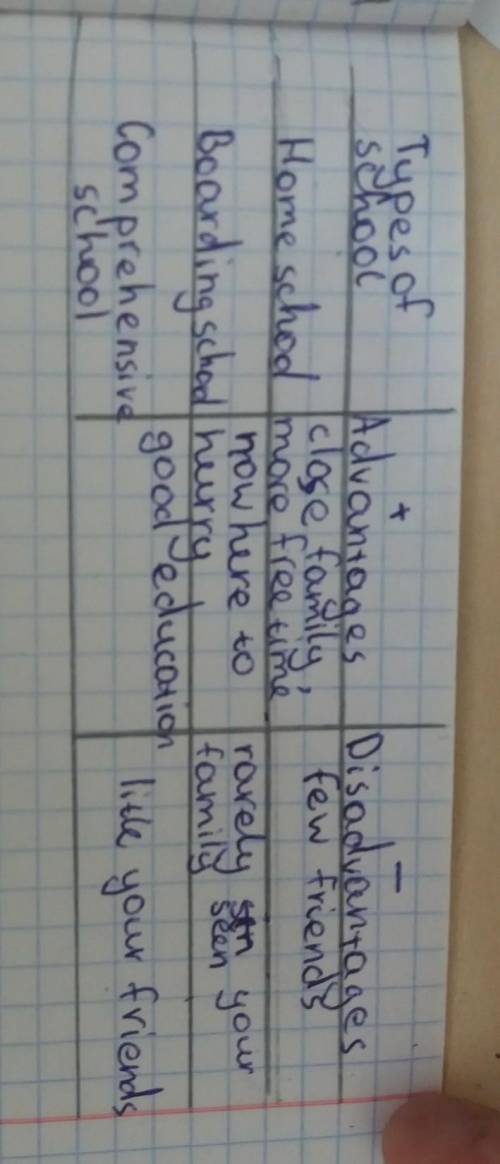 Types of
school
+
Advantages
−
Disadvantages
Home school
close family,
more free time
few friends
Boarding school
nowhere to
hurry
rarely seen your
family
Comprehensive
school
good education
little your friends